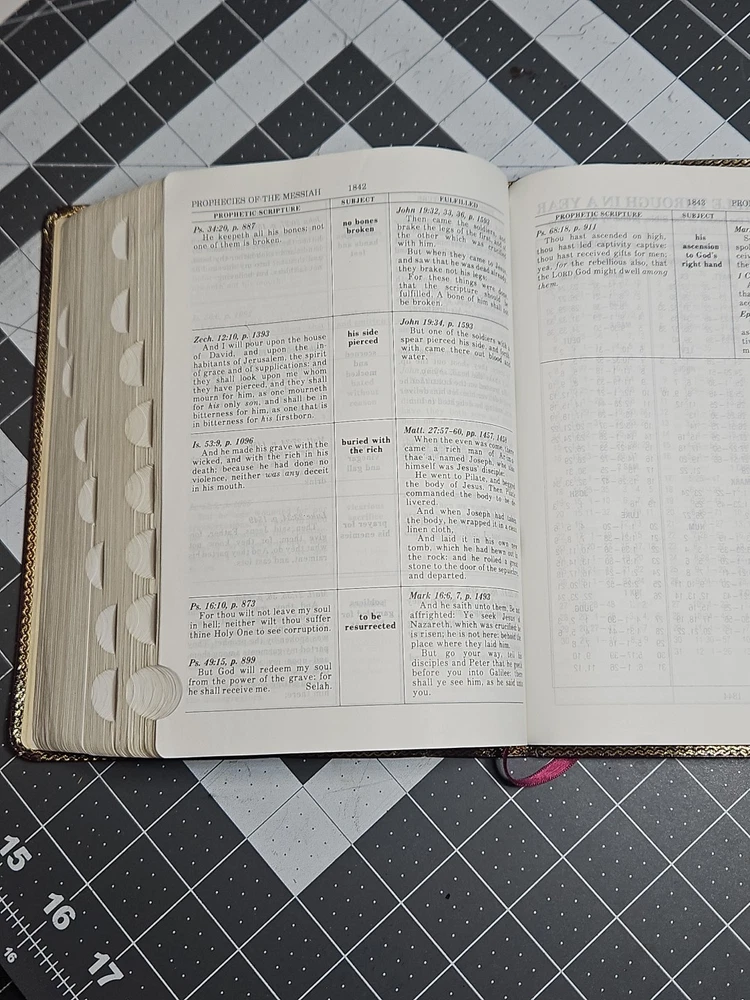 PROPHECIES OF THE MESSIAH 1842
PROPHETIC SCRIPTURE SUBJECT FULFILLED
Ps. 34:20, p. 887
He keepeth all his bones: not
one of them is broken.
no bones
broken
John 19:32, 33, 36, p. 1593
Then came the soldiers, and
brake the legs of the first, and of
the other which was crucified
with him.
But when they came to
and saw that he was dead
they brake not his legs:
For these things were done,
that the scripture should be
fulfilled, A bone of him shall not
be broken.
Zech. 12:10, p. 1393
And I will pour upon the house
of David, and upon the in-
habitants of Jerusalem, the spirit
of grace and of supplications: and
they shall look upon me whom
they have pierced, and they shall
mourn for him, as one mourneth
for his only son, and shall be in
bitterness for him, as one that is
in bitterness for his firstborn.
his side
pierced
John 19:34, p. 1593
But one of the soldiers with a
spear pierced his side, and forth-
with came there out blood and
water.
Is. 53:9, p. 1096
And he made his grave with the
wicked, and with the rich in his
death; because he had done no
violence, neither was any deceit
in his mouth.
buried with
the rich
Matt. 27:57–60, pp. 1457, 1458
When the even was come, there
came a rich man of
thae´a, named Joseph, who also
himself was Jesus' disciple:
He went to Pilate, and begged
the body of Jesus. Then Pilate
commanded the body to be de-
livered.
And when Joseph had taken
the body, he wrapped it in a clean
linen cloth,
And laid it in his own new
tomb, which he had hewn out in
the rock: and he rolled a great
stone to the door of the sepulchre,
and departed.
Ps. 16:10, p. 873
For thou wilt not leave my soul
in hell; neither wilt thou suffer
thine Holy One to see corruption.
Ps. 49:15, p. 899
But God will redeem my soul
from the power of the grave: for
he shall receive me. Selah.
to be
resurrected
Mark 16:6, 7, p. 1493
And he saith unto them, Be not
affrighted: Ye seek Jesus of
Nazareth, which was crucified: he
is risen; he is not here: behold the
place where they laid him.
But go your way, tell his
disciples and Peter that he goeth
before you into Galilee: there
shall ye see him, as he said unto
you.
1843
PROPHETIC SCRIPTURE SUBJECT
Ps. 68:18, p. 911
Thou hast ascended on high,
thou hast led captivity captive:
thou hast received gifts for men;
yea, for the rebellious also, that
the LORD God might dwell among
them.
his
ascension
to God's
right hand
15
16
17
16